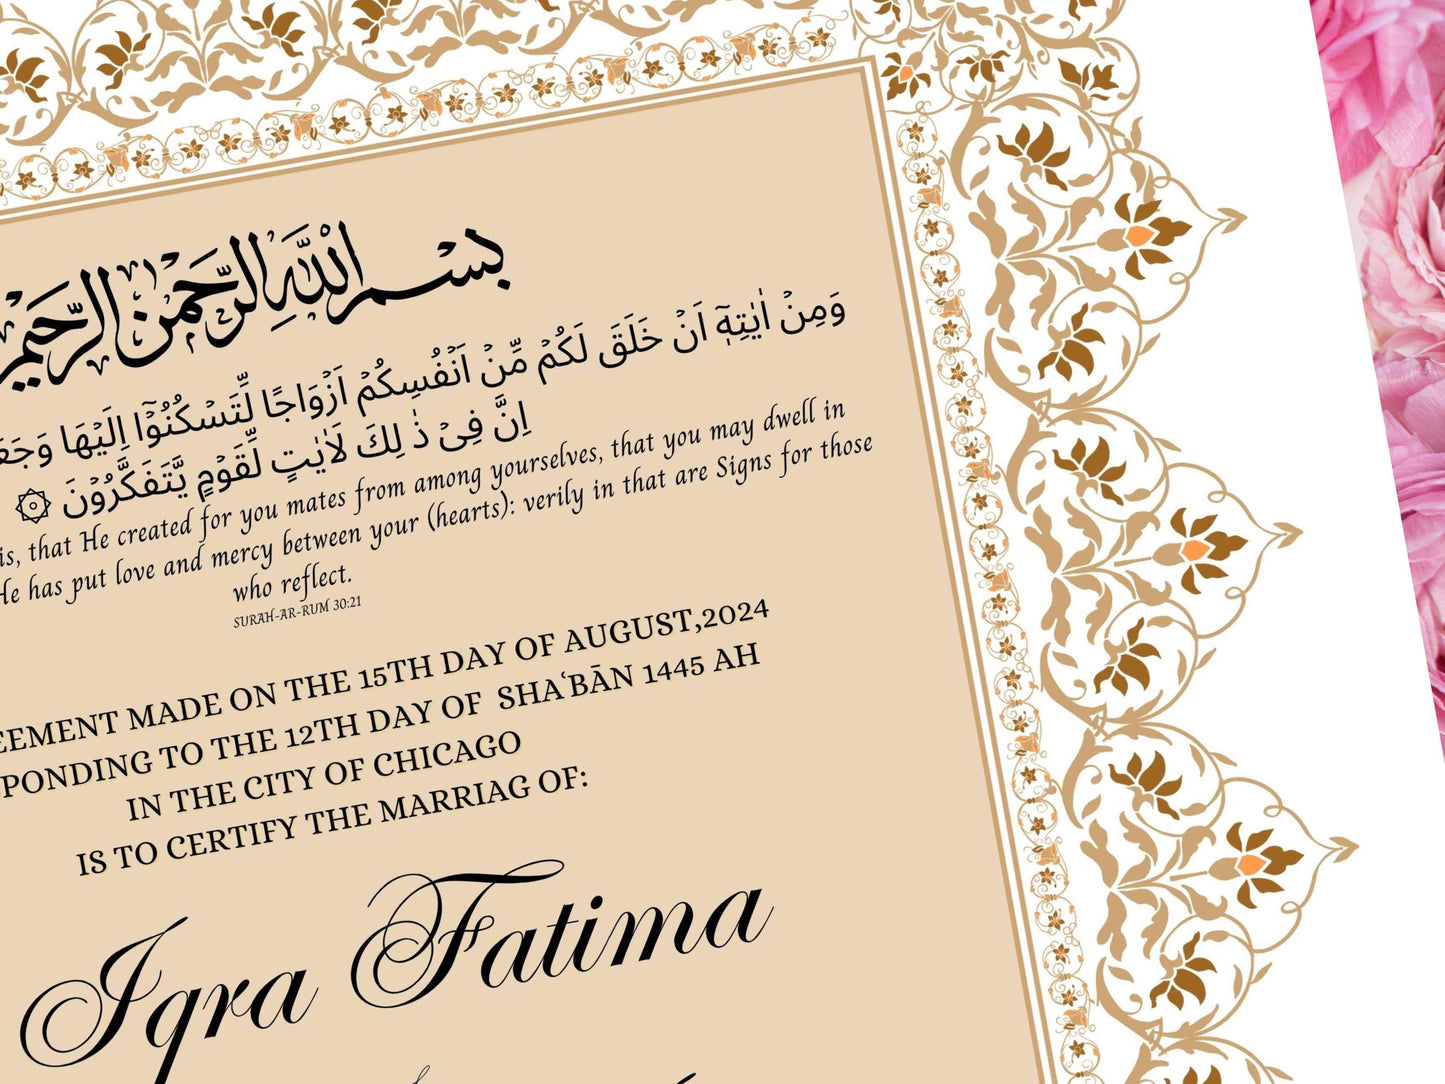 بِسْمِ اللّٰهِ الرَّحْمٰنِ الرَّحِيْمِ
وَمِنْ اٰيٰتِهٖٓ اَنْ خَلَقَ لَكُمْ مِّنْ اَنْفُسِكُمْ اَزْوَاجًا لِّتَسْكُنُوْٓا اِلَيْهَا
اِنَّ فِىْ ذٰ لِكَ لَاٰيٰتٍ لِّقَوْمٍ يَّتَفَكَّرُوْنَ ۞
is, that He created for you mates from among yourselves, that you may dwell in
He has put love and mercy between your (hearts): verily in that are Signs for those
who reflect.
SURAH-AR-RUM 30:21
EEMENT MADE ON THE 15TH DAY OF AUGUST,2024
PONDING TO THE 12TH DAY OF SHAʿBĀN 1445 AH
IN THE CITY OF CHICAGO
IS TO CERTIFY THE MARRIAG OF:
Iqra Fatima